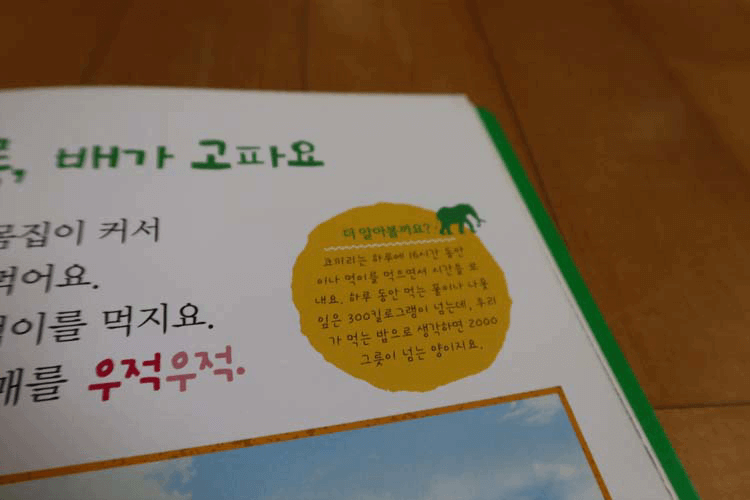 , 배가 고파요
몸집이 커서
먹어요.
먹이를 먹지요.
매를 우적우적.
더 알아볼까요?
코끼리는 하루에 16시간 동안
이나 먹이를 먹으면서 시간을 보
내요. 하루 동안 먹는 풀이나 나뭇
잎은 300킬로그램이 넘는데, 우리
가 먹는 밥으로 생각하면 2000
그릇이 넘는 양이지요.